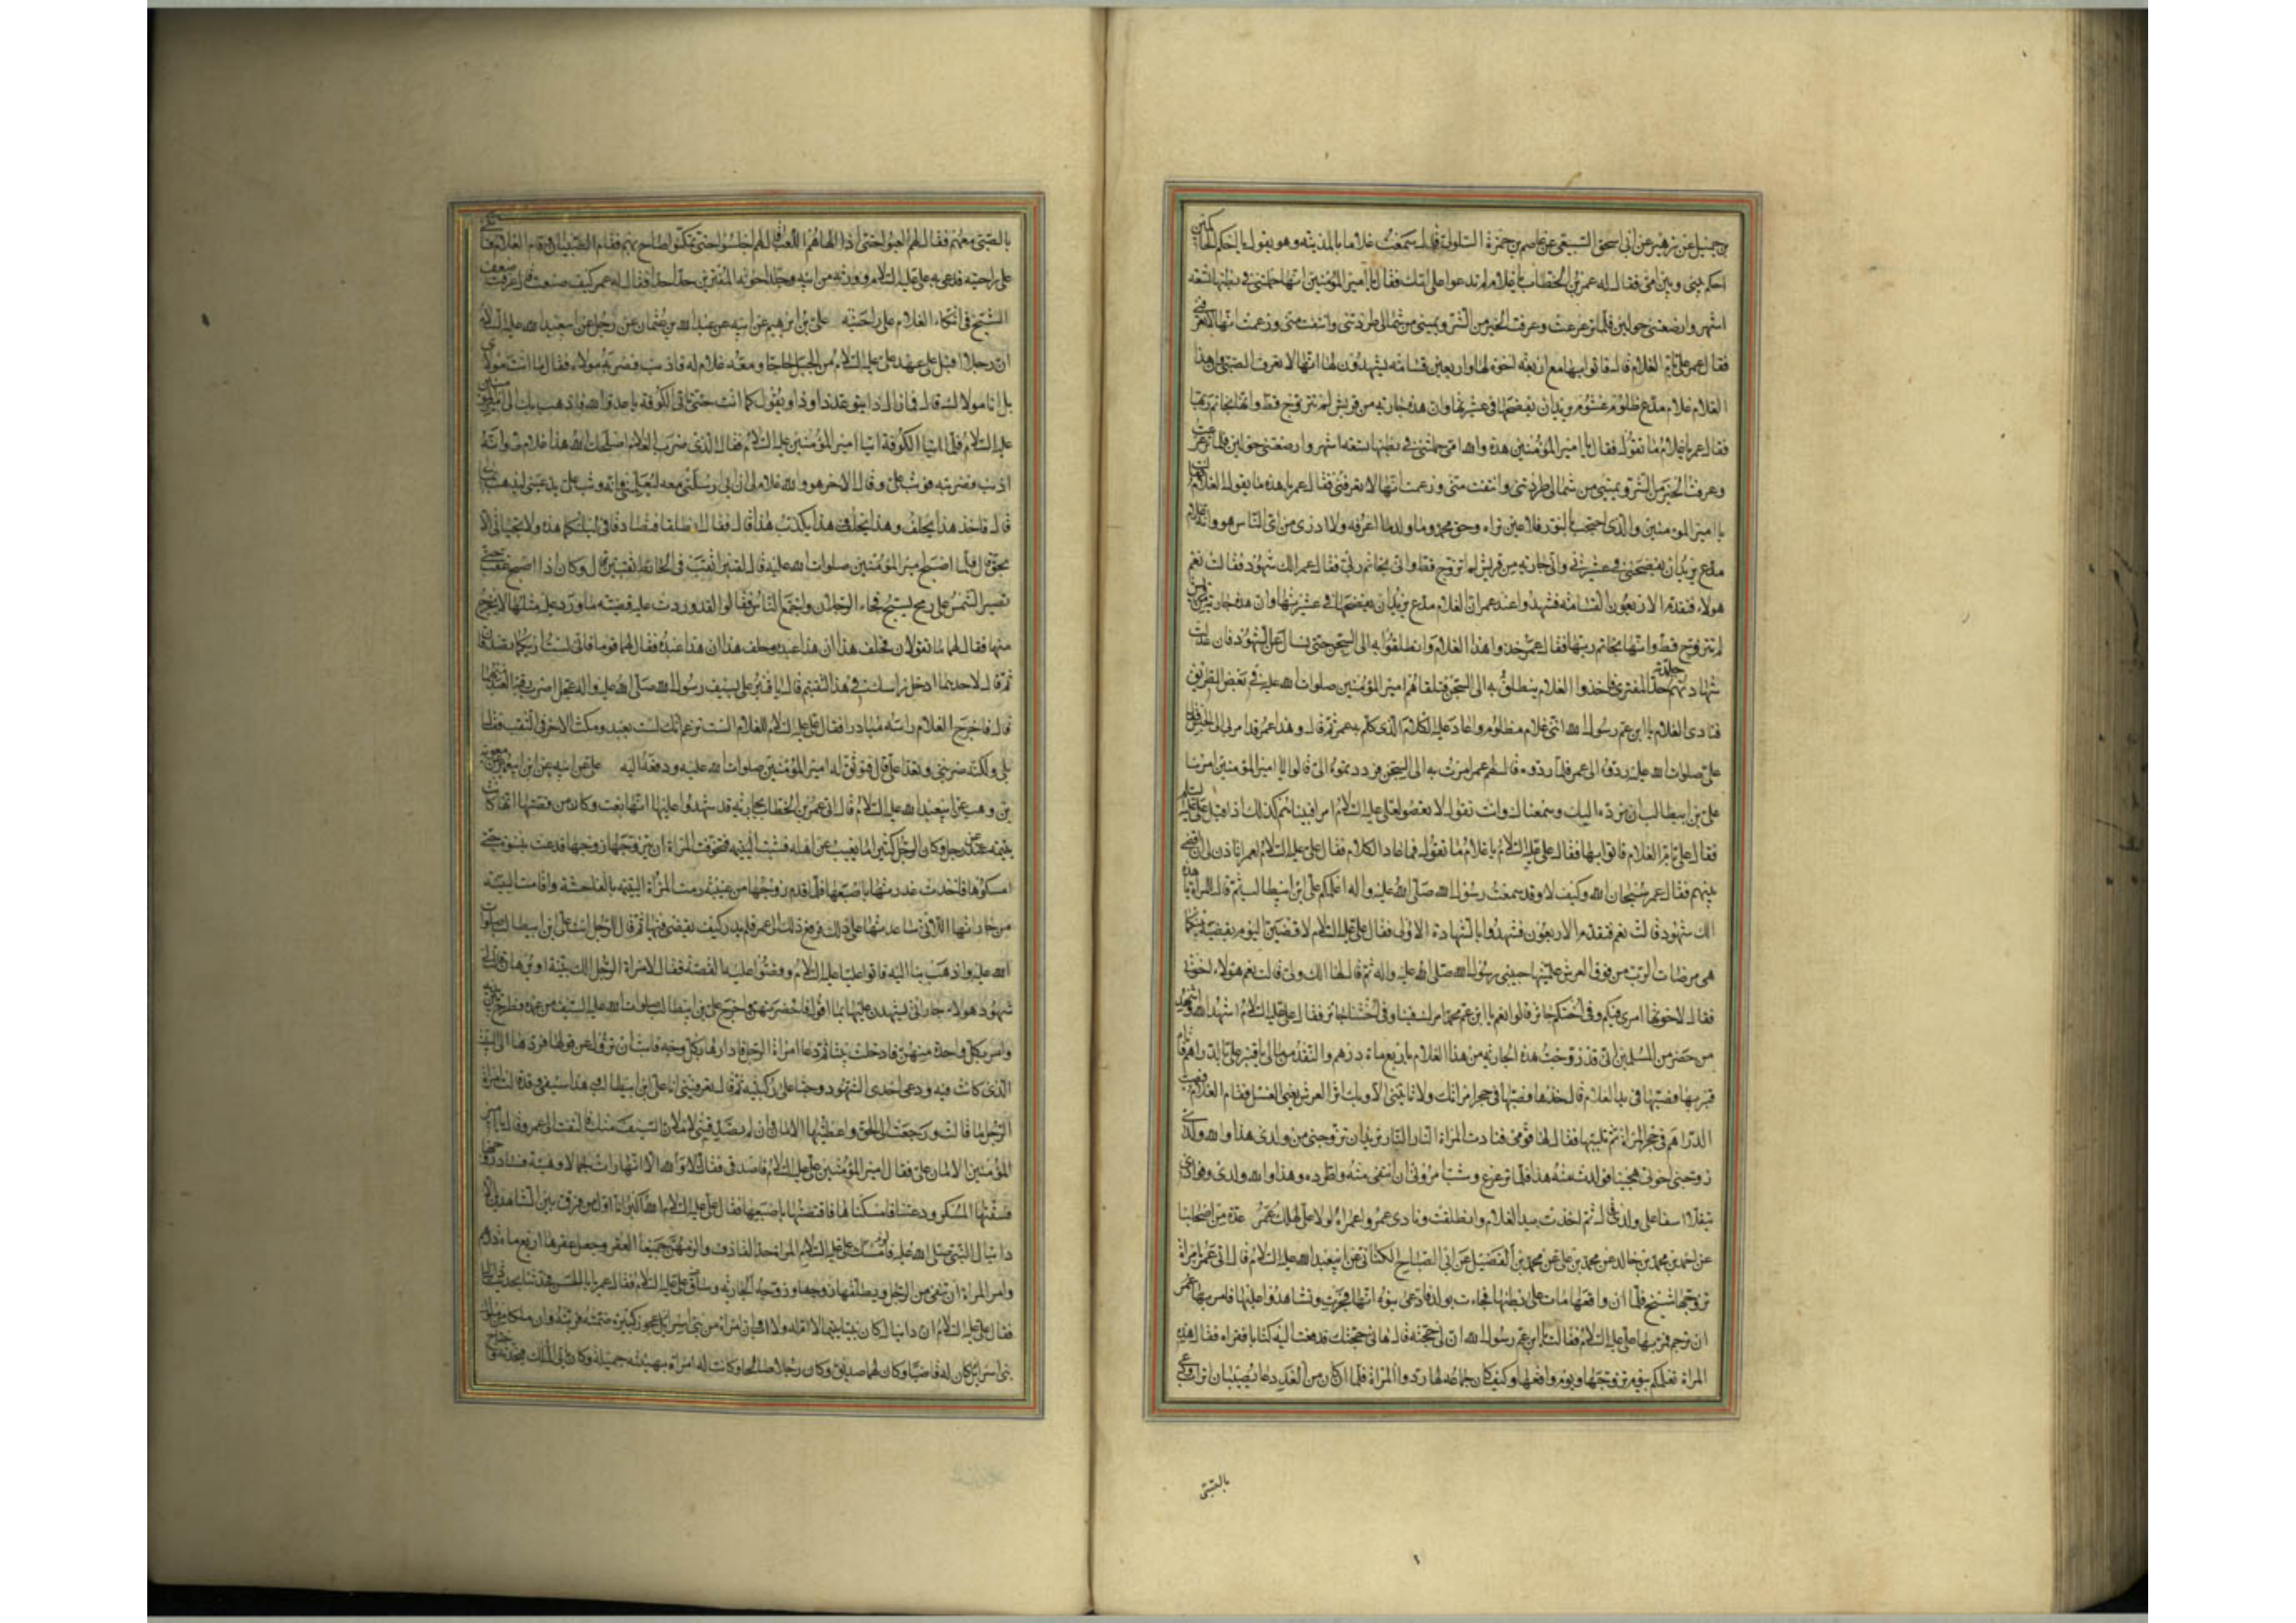 بن جميل عن زهير عن ابى اسحق السبيعى عن عاصم بن حمزة السلولى قال سمعت غلاما بالمدينه وهو يقول يا احكم الحاكمين
احكم بينى وبين امى فقال له عمر بن الخطاب يا غلام لم تدعوا على امك فقال يا امير المؤمنين انها حملتنى فى بطنها تسعه
اشهر وارضعتنى حولين فلما ترعرعت وعرفت الخير من الشر ويمينى من شمالى طردتنى وانتفت منى وزعمت انها لا تعرفنى
فقال عمر على بام الغلام قال فاتوا بها مع اربعه اخوة لها واربعين قسامه يشهدون لها انها لا تعرف الصبى وان هذا
الغلام غلام مدع ظلوم غشوم يريدان يفضحها فى عشيرتها وان هذه جاريه من قريش لم تتزوج قط وانها بخاتم ربها
فقال عمر يا غلام ما تقول فقال يا امير المؤمنين هذه والله امى حملتنى فى بطنها تسعه اشهر وارضعتنى حولين فلما ترعرعت
وعرفت الخير من الشر ويمينى من شمالى طردتنى وانتفت منى وزعمت انها لا تعرفنى فقال عمر يا هذه ما يقول الغلام فقالت
يا امير المؤمنين والذى احتجب بالنور فلا عين تراه وحق محمد وما ولد ما اعرفه ولا ادرى من اى الناس هو وانه غلام
مدع يريدان يفضحنى فى عشيرتى وانى جاريه من قريش لم اتزوج قط وانى بخاتم ربى فقال عمر الك شهود فقالت نعم
هولاء فتقدم الاربعون القسامه فشهدوا عند عمر ان الغلام مدع يريدان يفضحها فى عشيرتها وان هذه جاريه من قريش
لم تتزوج قط وانها بخاتم ربها فقال عمر خذوا هذا الغلام وانطلقوا به الى السجن حتى نسال عن الشهود فان عدلت
شهادتهم جلدته حد المفترى فاخذوا الغلام ينطلق به الى السجن فتلقاهم امير المؤمنين صلوات الله عليه فى بعض الطريق
فنادى الغلام يا ابن عم رسول الله اننى غلام مظلوم واعاد عليه الكلام الذى كلم به عمر ثم قال وهذا عمر قد امر بى الى الحبس فقال
على صلوات الله عليه ردوه الى عمر فلما ردوه قال لهم عمر امرت به الى السجن فرددتموه الى قالوا يا امير المؤمنين امرنا
على بن ابيطالب ان نرده اليك وسمعناك وانت تقول لا تعصوا لعلى عليه السلام امرا فبيناهم كذلك اذ اقبل على عليه السلم
فقال على بام الغلام فاتوا بها فقال على عليه السلام يا غلام ما تقول فاعاد الكلام فقال على عليه السلام لعمر اتاذن لى ان اقضى
بينهم فقال عمر سبحان الله وكيف لا وقد سمعت رسول الله صلى الله عليه واله اعلمكم على ابن ابيطالب ثم قال للمراة يا هذه
الك شهود قالت نعم فتقدم الاربعون فشهدوا بالشهادة الاولى فقال على عليه السلام لاقضين اليوم بقضيه بينكما
هى مرضات الرب من فوق العرش علمنيها حبيبى رسول الله صلى الله عليه واله ثم قال لها الك ولى قالت نعم هولاء اخوتى
فقال لاخوتها امرى فيكم وفى اختكم جائز قالوا نعم يا ابن عم محمد امرك فينا وفى اختنا جائز فقال على عليه السلام اشهد الله واشهد
من حضر من المسلمين انى قد زوجت هذه الجاريه من هذا الغلام باربع ماة درهم والنقد من مالى يا قنبر على بالدراهم فاتاه
قنبر بها فصبها فى يد الغلام قال خذها فصبها فى حجر امراتك ولا تاتينى الا وبك اثر العرس يعنى الغسل فقام الغلام فصب
الدراهم فى حجر المراة ثم تلبيها فقال لها قومى فنادت المراة النار النار تريدان تزوجنى من ولدى هذا والله ولدى
زوجنى اخوتى هجينا فولدت منه هذا فلما ترعرع وشب امرونى ان انتفى منه واطرده وهذا والله ولدى وفوادى
يتقلا اسفا على ولدى قال ثم اخذت بيد الغلام وانطلقت ونادى عمر واعمراه لولا على لهلك عمر عدة من اصحابنا
عن احمد بن محمد بن خالد عن محمد بن على عن محمد بن الفضيل عن ابى الصباح الكنانى عن ابيعبد الله عليه السلام قال اتى عمر بامراة
تزوجها شيخ فلما ان واقعها مات على بطنها فجاءت بولد فادعى بنوه انها فجرت وتشاهدوا عليها فامر بها عمر
ان ترجم فمر بها على عليه السلام فقالت يا ابن عم رسول الله ان لى حجه قال هاتى حجتك فدفعت اليه كتابا فقراه فقال هذه
المراة تعلمكم بيوم تزوجها ويوم واقعها وكيف كان جماعه لها ردوا المراة فلما كان من الغد دعا بصبيان اتراب ودعى
بالصبى
بالصبى معهم فقال لهم العبوا حتى اذا الهاهم اللعب قال لهم اجلسوا حتى تمكنوا صاح بهم فقام الصبيان وقام الغلام فاتكى
على راحتيه فدعى به على عليه السلام وورثه من ابيه وجلد اخوته المفترين حدا حدا فقال له عمر كيف صنعت قال عرفت ضعف
الشيخ فى اتكاء الغلام على راحتيه على بن ابرهيم عن ابيه عن عبد الله بن عثمان عن رجل عن ابيعبد الله عليه السلام
ان رجلا اقبل على عهد على عليه السلام من الجبل حاجا ومعه غلام له فاذنب فضربه مولاه فقال ما انت مولاى
بل انا مولاك قال فما زال ذا يتوعد ذا وذا يقول كما انت حتى ناتى الكوفه يا عدو الله فاذهب بك الى امير المؤمنين
عليه السلام فلما اتيا الكوفة اتيا امير المؤمنين عليه السلام فقال الذى ضرب الغلام اصلحك الله هذا غلام لى وانه
اذنب فضربته فوثب على وقال الاخر هو والله غلام لى ان ابى ارسلنى معه ليعلمنى وانه وثب على يدعينى ليذهب بمالى
قال فاخذ هذا يحلف وهذا يحلف وهذا يكذب هذا قال فقال انطلقا فتصادقا فى ليلتكما هذه ولا تجيئانى الا
بحق قال فلما اصبح امير المؤمنين صلوات الله عليه قال لقنبر اثقب فى الحائط ثقبين قال وكان اذا اصبح عقب حتى
تصير الشمس على رمح يسبح فجاء الرجلان واجتمع الناس فقالوا لقد وردت عليه قضيه ما ورد عليه مثلها لا يخرج
منها فقال لهما ما تقولان فحلف هذا ان هذا عبده وحلف هذا ان هذا عبده فقال لهما قوما فانى لست اراكما تصدقان
ثم قال لاحدهما ادخل راسك فى هذا الثقب ثم قال يا قنبر على بسيف رسول الله صلى الله عليه واله عجل اضرب رقبة العبد منهما
قال فاخرج الغلام راسه مبادرا فقال على عليه السلام للغلام الست تزعم انك لست بعبد ومكث الاخر فى الثقب فقال
بلى ولكنه ضربنى وتعدا على قال فتوثق له امير المؤمنين صلوات الله عليه ودفعه اليه على عن ابيه عن ابن ابيعمير عن معوية
بن وهب عن ابيعبد الله عليه السلام قال اتى عمر بن الخطاب بجاريه قد شهدوا عليها انها بغت وكان من قصتها انها كانت
يتيمه عند رجل وكان الرجل كثيرا ما يغيب عن اهله فشبت اليتيمه فتخوفت المراة ان يتزوجها زوجها فدعت بنسوة حتى
امسكوها فاخذت عذرتها باصبعها فلما قدم زوجها من غيبته رمت المراة اليتيمه بالفاحشه واقامت البينه
من جاراتها اللاتى ساعدتها على ذلك فرفع ذلك الى عمر فلم يدر كيف يقضى فيها ثم قال للرجل ائت على ابن ابيطالب صلوات
الله عليه واذهب بنا اليه فاتوا عليا عليه السلام وقصوا عليه القصه فقال لامراة الرجل الك بينة او برهان قالت لى
شهود هولاء جاراتى يشهدن عليها بما اقول فاحضرتهن واخرج على بن ابيطالب صلوات الله عليه السيف من غمده فطرح بين يديه
وامر بكل واحدة منهن فادخلت بيتا ثم دعا امراة الرجل فادارها بكل وجه فابت ان تزول عن قولها فردها الى البيت
الذى كانت فيه ودعى احدى الشهود وجثا على ركبتيه ثم قال تعرفينى انا على ابن ابيطالب وهذا سيفى وقد قالت امراة
الرجل ما قالت ورجعت الى الحق واعطيتها الامان فان لم تصدقينى لاملان السيف منك فالتفت الى عمر وقالت يا امير
المؤمنين الامان على فقال امير المؤمنين على عليه السلام فاصدقى فقالت لا والله الا انها رات جمالا وهيئة فخافت فساد زوجها
فسقتها المسكر ودعتنا فامسكناها فاقتضتها باصبعها فقال على عليه السلام الله اكبر انا اول من فرق بين الشاهدين الا
دانيال النبى صلى الله عليه فامسك على عليه السلام المراة حد القاذف والزمهن جميعا العقر وجعل عقرها اربع ماة درهم
وامر المراة ان تنفى من الرجل ويطلقها زوجها وزوجه الجاريه وساق على عليه السلام فقال عمر يا با الحسن فحدثنا بحديث دانيال
فقال على عليه السلام ان دانيال كان يتيما لا ام له ولا اب وان امراة من بنى اسرائيل عجوز كبيره ضمته فربته وان ملكا من ملوك
بنى اسرائيل كان له قاضيان وكان لهما صديق وكان رجلا صالحا وكانت له امراة بهيئه جميلة وكان ياتى الملك فيحدثه واحتاج